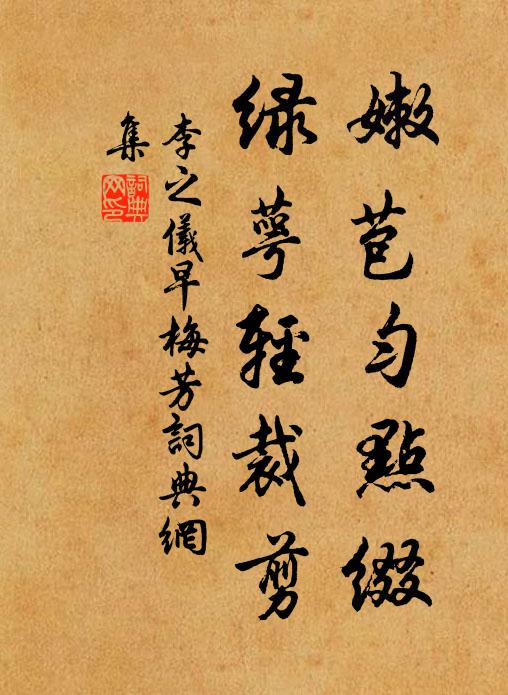 嫩苞匀點綴
緑萼輕裁剪
李之儀早梅芳詞典網
集
詞典網印